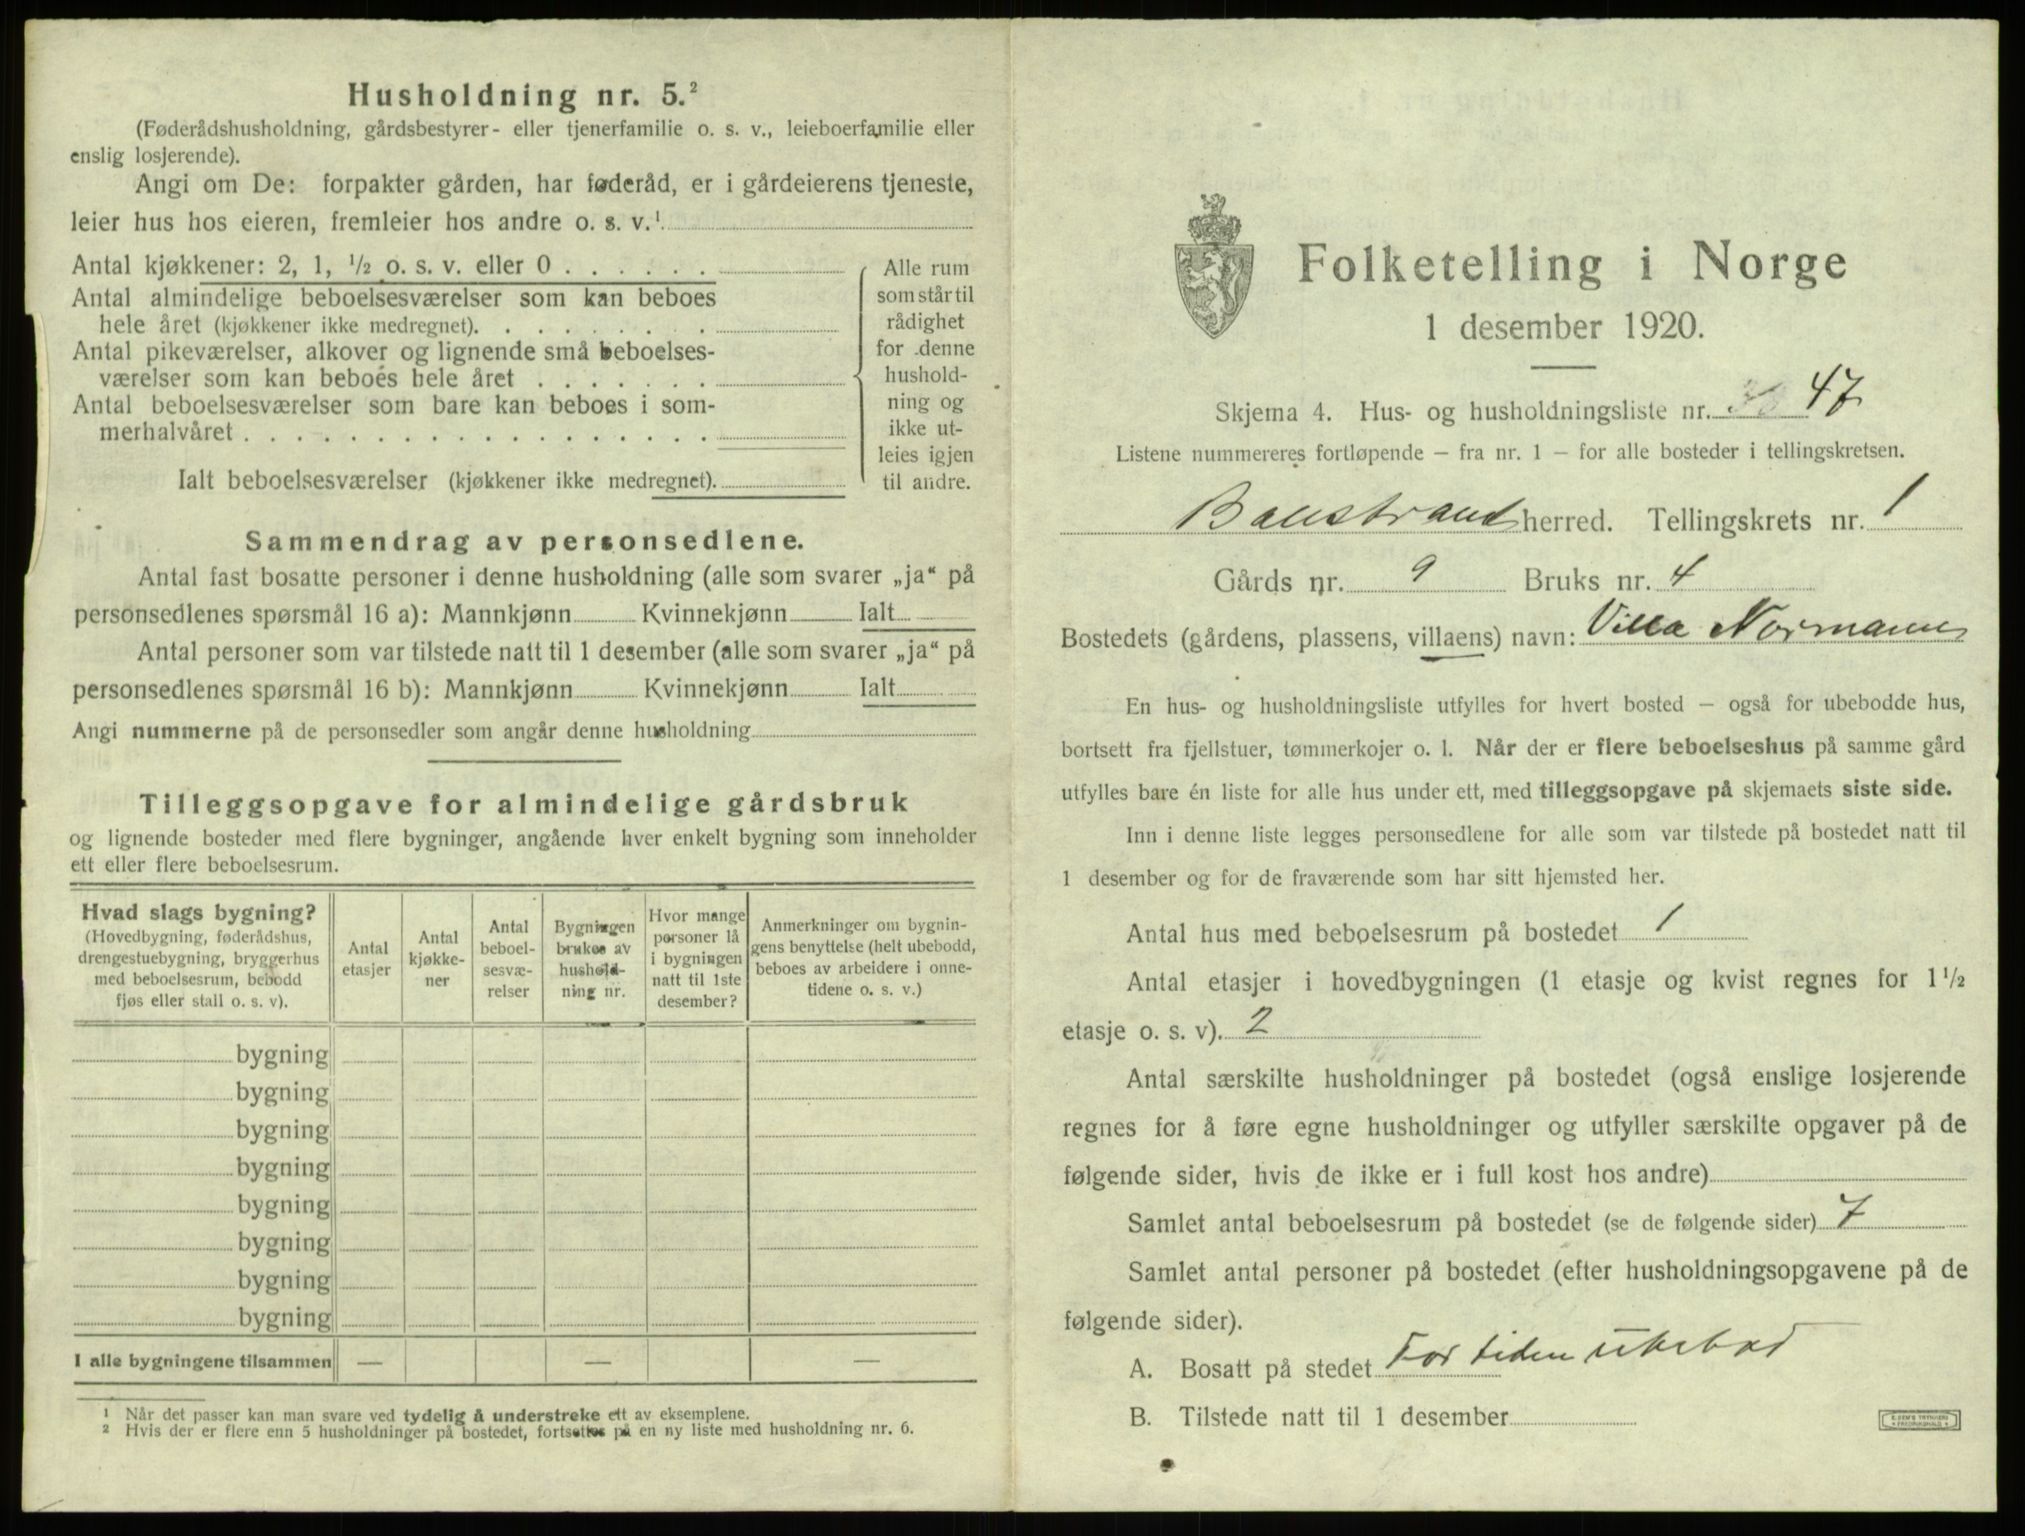 Husholdning nr. 5.²
(Føderådshusholdning, gårdsbestyrer- eller tjenerfamilie o. s. v., leieboerfamilie eller
enslig losjerende).
Angi om De: forpakter gården, har føderåd, er i gårdeierens tjeneste,
leier hus hos eieren, fremleier hos andre o. s. v.¹
Antal kjøkkener: 2, 1, ½ o. s. v. eller 0
Antal almindelige beboelsesværelser som kan beboes
hele året (kjøkkener ikke medregnet).
Antal pikeværelser, alkover og lignende små beboelses-
værelser som kan beboes hele året
Antal beboelsesværelser som bare kan beboes i som-
merhalvåret
Ialt beboelsesværelser (kjøkkener ikke medregnet).
Alle rum
som står til
rådighet
for denne
hushold-
ning og
ikke ut-
leies igjen
til andre.
Sammendrag av personsedlene.
Antal fast bosatte personer i denne husholdning (alle som svarer „ja“ på
personsedlenes spørsmål 16 a): Mannkjønn Kvinnekjønn Ialt
Antal personer som var tilstede natt til 1 desember (alle som svarer „ja“ på
personsedlenes spørsmål 16 b): Mannkjønn Kvinnekjønn Ialt
Angi nummerne på de personsedler som angår denne husholdning
Tilleggsopgave for almindelige gårdsbruk
og lignende bosteder med flere bygninger, angående hver enkelt bygning som inneholder
ett eller flere beboelsesrum.
Hvad slags bygning?
(Hovedbygning, føderådshus,
drengestuebygning, bryggerhus
med beboelsesrum, bebodd
fjøs eller stall o. s. v).
Antal
etasjer
Antal
kjøkke-
ner
Antal
beboel-
sesvæ-
relser
Bygningen
brukes av
hushold-
ning nr.
Hvor mange
personer lå
i bygningen
natt til 1ste
desember?
Anmerkninger om bygnin-
gens benyttelse (helt ubebodd,
beboes av arbeidere i onne-
tidene o. s. v.)
bygning
bygning
bygning
bygning
bygning
bygning
bygning
bygning
I alle bygningene tilsammen — — —
¹ Når det passer kan man svare ved tydelig å understreke ett av eksemplene.
² Hvis der er flere enn 5 husholdninger på bostedet, fortsettes på en ny liste med husholdning nr. 6.
Folketelling i Norge
1 desember 1920.
Skjema 4. Hus- og husholdningsliste nr. 47
Listene nummereres fortløpende — fra nr. 1 — for alle bosteder i tellingskretsen.
Balestrand herred. Tellingskrets nr. 1
Gårds nr. 9 Bruks nr. 4
Bostedets (gårdens, plassens, villaens) navn: Villa Normann
En hus- og husholdningsliste utfylles for hvert bosted — også for ubebodde hus,
bortsett fra fjellstuer, tømmerkojer o. l. Når der er flere beboelseshus på samme gård
utfylles bare én liste for alle hus under ett, med tilleggsopgave på skjemaets siste side.
Inn i denne liste legges personsedlene for alle som var tilstede på bostedet natt til
1 desember og for de fraværende som har sitt hjemsted her.
Antal hus med beboelsesrum på bostedet 1
Antal etasjer i hovedbygningen (1 etasje og kvist regnes for 1 ½
etasje o. s. v). 2
Antal særskilte husholdninger på bostedet (også enslige losjerende
regnes for å føre egne husholdninger og utfyller særskilte opgaver på de
følgende sider, hvis de ikke er i full kost hos andre)
Samlet antal beboelsesrum på bostedet (se de følgende sider) 7
Samlet antal personer på bostedet (efter husholdningsopgavene på de
følgende sider).
A. Bosatt på stedet For tiden ubebod
B. Tilstede natt til 1 desember